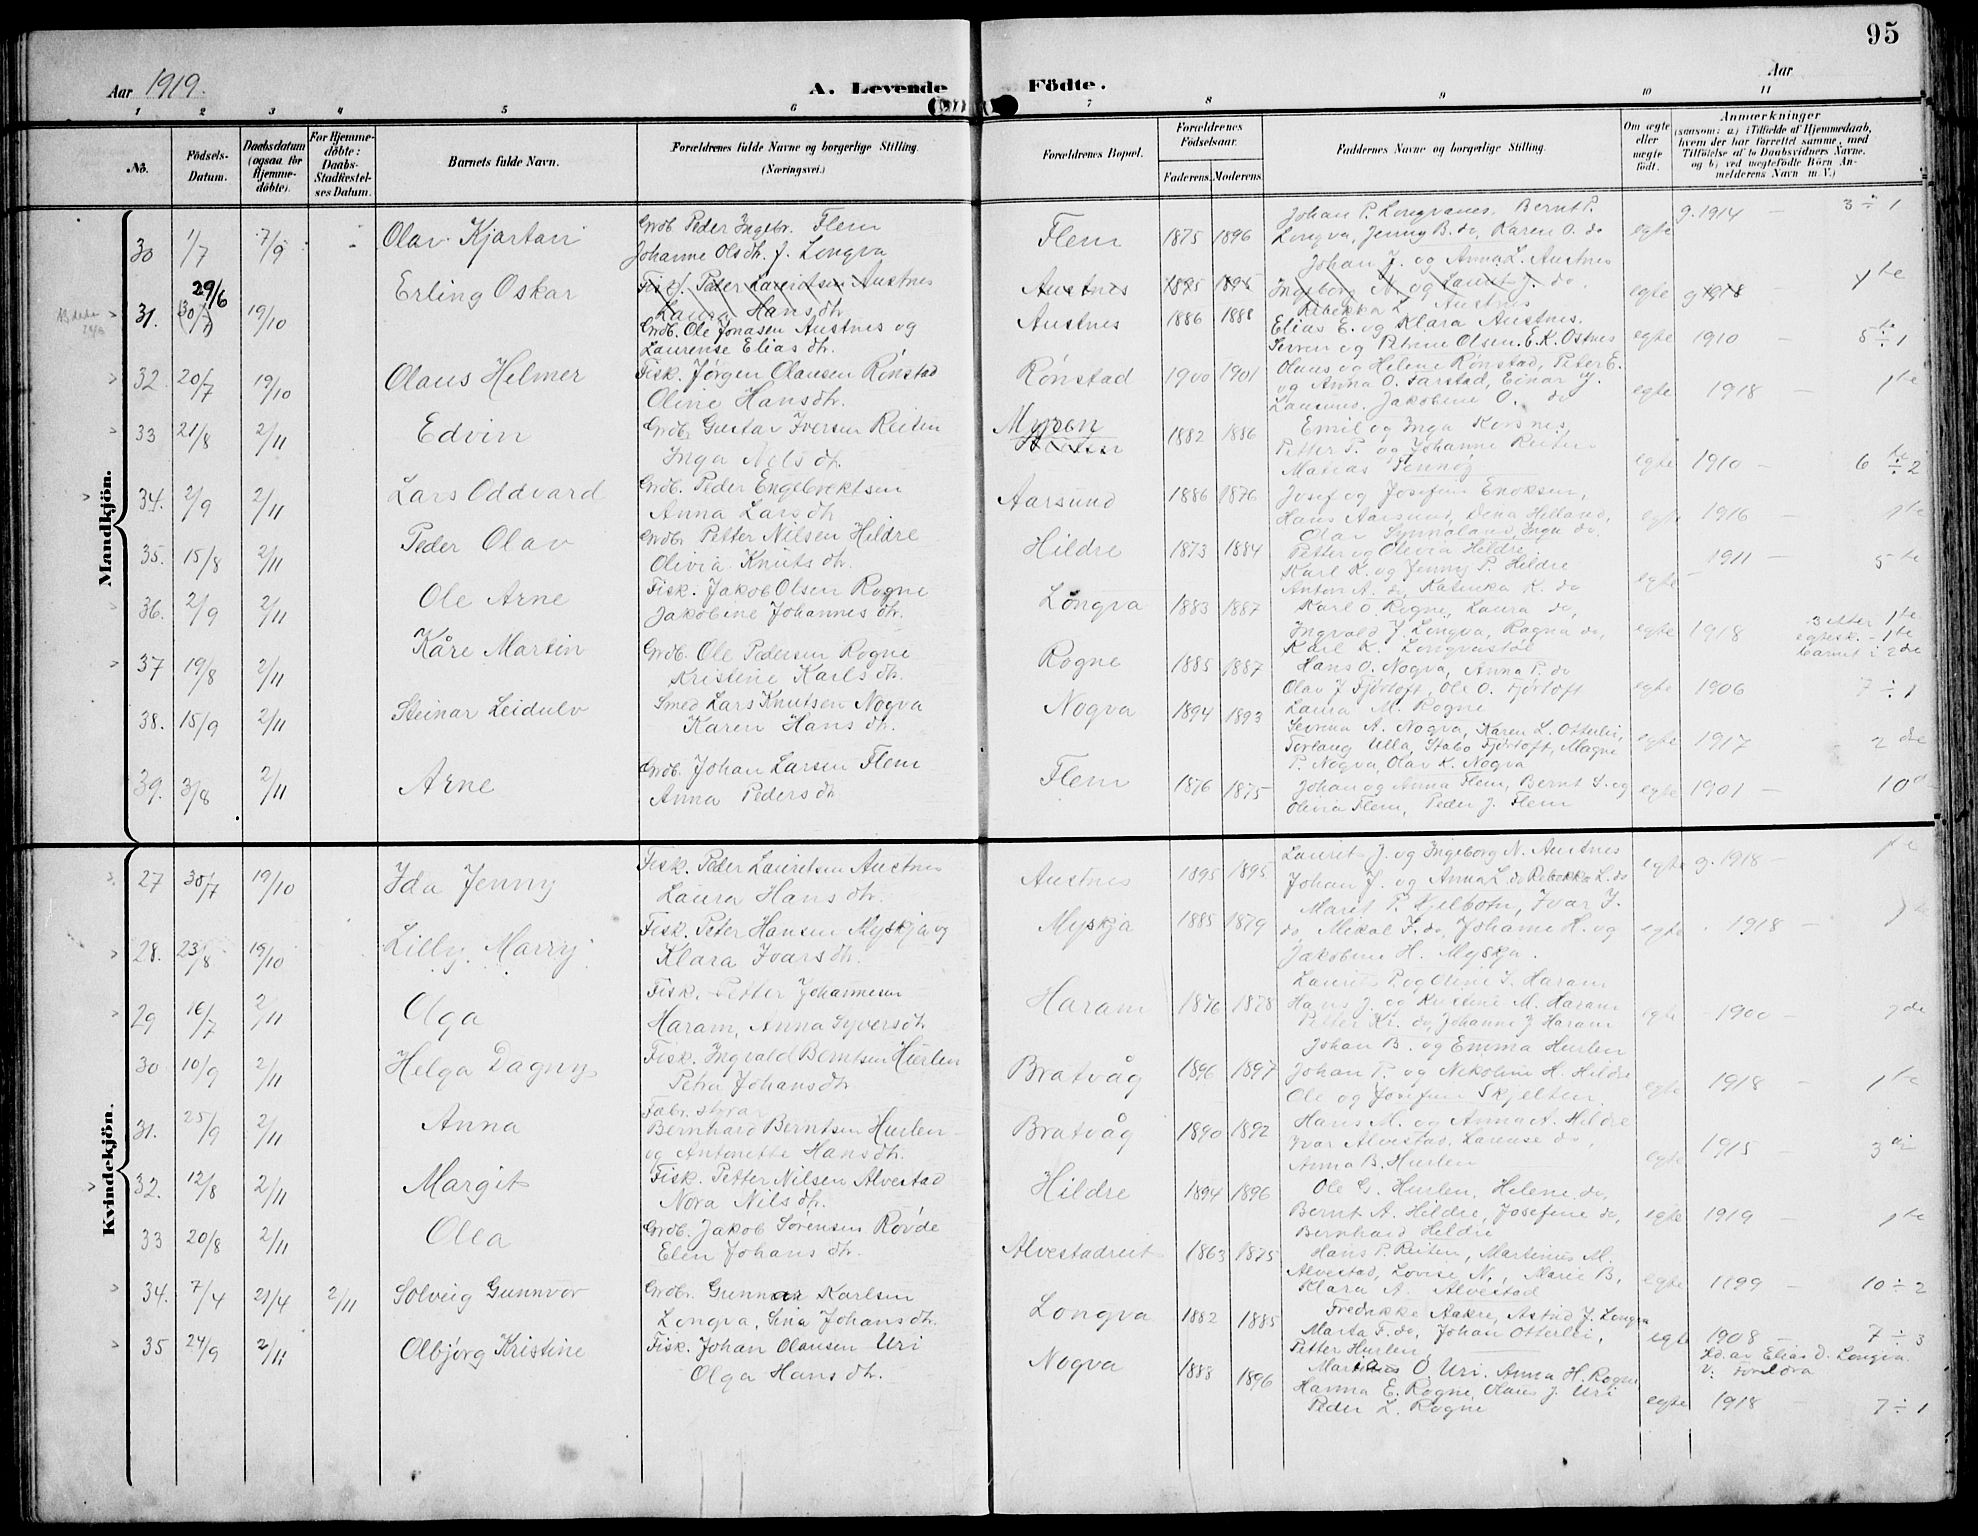 95
Aar 1919.
A. Levende Födte.
Aar
1 2 3 4 5 6 7 8 9 10 11
No.
Födsels-Datum.
Daabsdatum (ogsaa for Hjemme-döbte).
For Hjemme-döbte: Daabs-Stadfæstel-ses Datum.
Barnets fulde Navn.
Forældrenes fulde Navne og borgerlige Stilling. (Næringsvei.)
Forældrenes Bopæl.
Forældrenes Födselsaar.
Faderens. Moderens.
Faddernes Navne og borgerlige Stilling.
Om ægte eller uægte födt.
Anmærkninger (saasom: a.) i Tilfælde af Hjemmedaab, hvem der har forrettet samme, med Tilföielse af to Daabsvidners Navne, og b.) ved uægtefödte Börn Anmelderens Navn m. V.)
Mandkjön.
30 1/7 7/9 Olav Kjartan
Grdb. Peder Ingebr. Flem
Johanne Olsdtr. f. Longva
Flem 1875 1896
Johan P. Longvanes, Bernt P.
Longva, Jenny B. do, Karen O. do
egte g. 1914 - 3 ÷ 1
29/6
31. (30/7) 19/10 Erling Oskar
Fisk. Peder Lauritsen Austnes
Laura Hansdtr.
Austnes 1895 1895
Johan J. og Anna L. Austnes
Ingeborg N. og Laurit J. do.
Rebekka L. Austnes
egte g 1918 - 1te
Grdb. Ole Jonasen Austnes og
Laurense Eliasdtr.
Austnes 1886 1888
Elias E. og Klara Austnes.
Severin og Petrine Olsen. E. K. Ostnes
egte 1910 - 5te ÷ 1
32. 20/7 19/10 Olaus Helmer
Fisk. Jørgen Olausen Rønstad
Oline Hansdtr.
Rønstad 1900 1901
Olaus og Helene Rønstad, Peter E.
og Anna O. Farstad, Einar J.
Jakobine O. do
egte 1918 - 1te
33 21/8 2/11 Edvin
Grdb. Gustav Iversen Reiten
Inga Nelsdtr.
Myren
Reiten
1882 1886
Emil og Inga Korsnes,
Petter P. og Johanne Reiten
Matias Tennøy
egte 1910 - 6te ÷ 2
34. 2/9 2/11 Lars Oddvard
Grdb. Peder Engebrektsen
Anna Larsdtr.
Aarsund 1886 1876
Josef og Josefine Enoksen,
Hans Aarsund, Dena Helland,
Olav Synnaland, Inga do.
egte 1916 - 1te
35. 15/8 2/11 Peder Olav
Grdb. Petter Nilsen Hildre
Olivia Knutsdtr.
Hildre 1873 1884
Petter og Olevia Hildre
Karl K. og Jenny P. Hildre
Anton A. do, Katinka K. do
egte 1911 - 5te
36. 2/9 2/11 Ole Arne
Fisk. Jakob Olsen Rogne
Jakobine Johannesdtr.
Longva 1883 1887
Karl O. Rogne, Laura do,
Ingvald J. Longva, Ragna do,
Karl K. Longvastøl
egte 1918
3 etter 1te
egtesk. - 1te
barnet i 2de
37 19/8 2/11 Kåre Martin
Grdb. Ole Pedersen Rogne
Kristine Karlsdtr.
Rogne 1885 1887
Hans O. Nogva, Anna P. do
Olav J. Fjørtoft, Ole O. Fjørtoft
Laura M. Rogne
egte 1906 7 ÷ 1
38. 15/9 2/11 Steinar Leidulv
Smed Lars Knutsen Nogva
Karen Hansdtr.
Nogva 1894 1893
Severina A. Nogva, Karen L. Otterlei,
Torlaug Ulla, Stabo Fjørtoft, Magne
P. Nogva, Olav K. Nogva
egte 1917 - 2dre
39. 3/8 2/11 Arne
Grdb. Johan Larsen Flem
Anna Pedersdtr
Flem 1876 1875
Johan og Anna Flem, Bernt S. og
Olivia Flem, Peder J. Flem
egte 1901 - 10de
Kvindekjön.
27 30/7 19/10 Ida Jenny
Fisk. Peder Lauritsen Austnes
Laura Hansdtr.
Austnes 1895 1895
Laurits J. og Ingeborg N. Austnes
Johan J. og Anna L. do Rebekka L. do
egte g. 1918 - 1te
28. 23/8 19/10 Lilly Marry
Fisk. Peter Hansen Myskja og
Klara Ivarsdtr.
Myskja 1885 1879
Marit P. Kjelbotn, Ivar J.
do, Mikal I. do, Johanne H. og
Jakobine H. Myskja.
egte 1918 - 1te
29 16/7 2/11 Olga
Fisk. Petter Johannesen
Haram, Anna Syversdtr.
Haram 1876 1878
Laurits P. og Oline S. Haram
Hans J. og Kristine M. Haram
Petter Kr. do, Johanne J. Haram
egte 1900 - 9de
30 10/9 2/11 Helga Dagny
Fisk. Ingvald Berntsen Hurlen
Petra Johansdtr
Bratvåg 1896 1897
Johan B. og Emma Hurlen
Johan P. og Nekoline H. Hildre
Ole og Josefine Skjelten.
egte 1918 - 1te
31. 25/9 2/11 Anna
Fabr. styrar
Bernhard Berntsen Hurlen
og Antonette Hansdtr.
Bratvåg 1890 1892
Hans M. og Anna A. Hildre
Ivar Alvestad, Larense do
Anna B. Hurlen
egte 1915 - 3die
32. 12/8 2/11 Margit
Fisk. Petter Nilsen Alvestad
Nora Nilsdtr.
Hildre 1894 1896
Ole G. Hurlen, Helene do,
Bernt A. Hildre, Josefine do,
Bernhard Hildre
egte 1919 - 1te
33 20/8 2/11 Olea
Grdb. Jakob Sørensen Røvde
Elen Johansdtr.
Alvestadreit 1863 1875
Hans P. Reiten, Martinus M.
Alvestad, Lovise N., Marie B.,
Klara A. Alvestad
egte 1899 - 10 ÷ 2
34. 7/4 21/4 2/11 Solveig Gunnvor
Grdbr. Gunnar Karlsen
Longva, Sina Johansdtr.
Longva 1882 1885
Fredrikke Aakre, Astrid J. Longva
Marta F. do, Johan Otterlei,
Petter Hurlen
egte 1908 - 7 ÷ 3
Ld. av Elias D. Longva.
V: Foreldra
35 24/9 2/11 Olbjørg Kristine
Fisk. Johan Olausen Uri
Olga Hansdtr.
Nogva 1888 1896
O. Uri. Anna H. Rogne
Hanna E. Rogne, Olaus J. Uri
Peder L. Rogne
egte 1918 - 7 ÷ 1